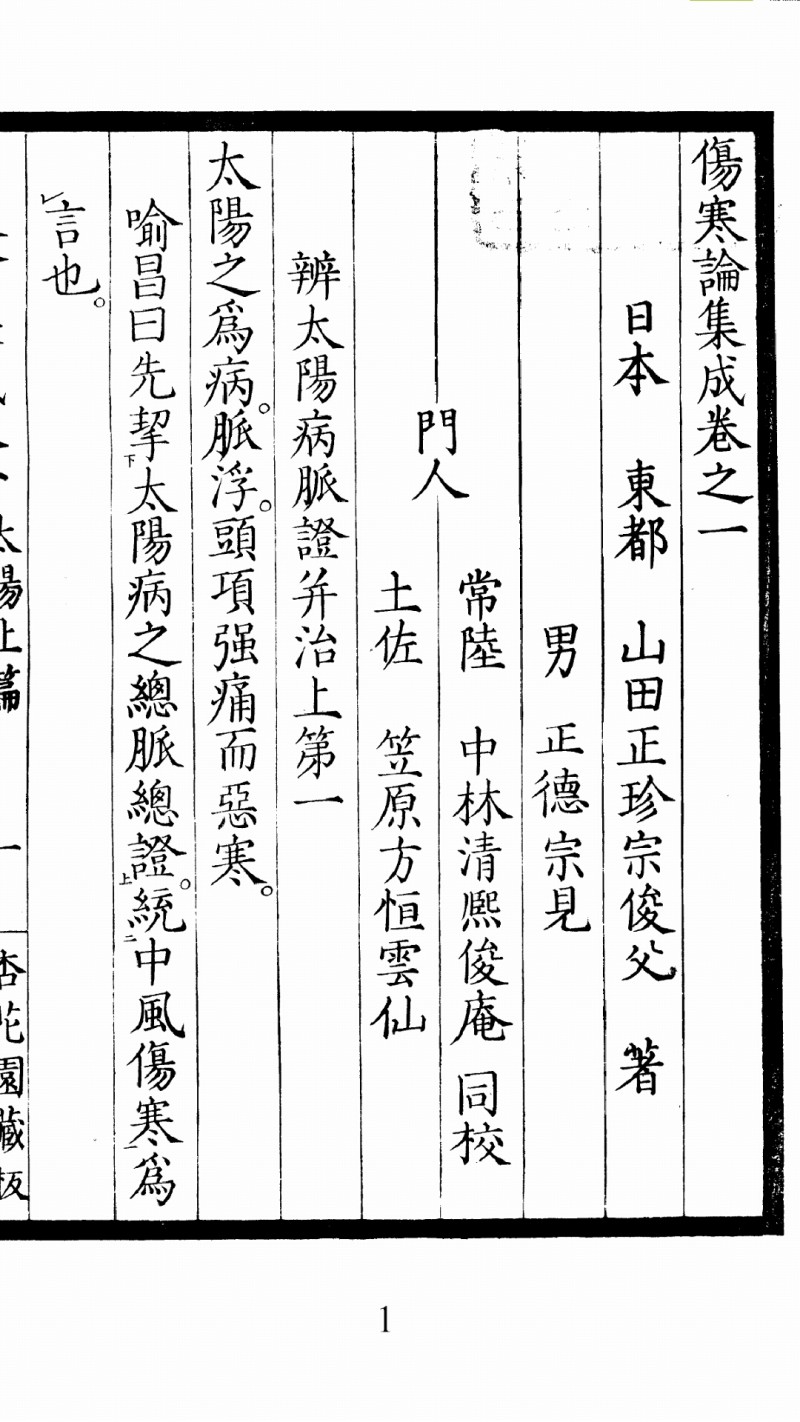 傷寒論集成卷之一
日本 東都 山田正珍宗俊父 著
男 正德宗見
門人
常陸 中林清熙俊庵 同校
土佐 笠原方恒雲仙
辨太陽病脈證并治上第一
太陽之爲病。脈浮。頭項强痛而惡寒。
喻昌曰先挈下太陽病之總脈總證。上統二中風傷寒一爲
レ言也。
太陽上篇 一 杏花園藏板
1